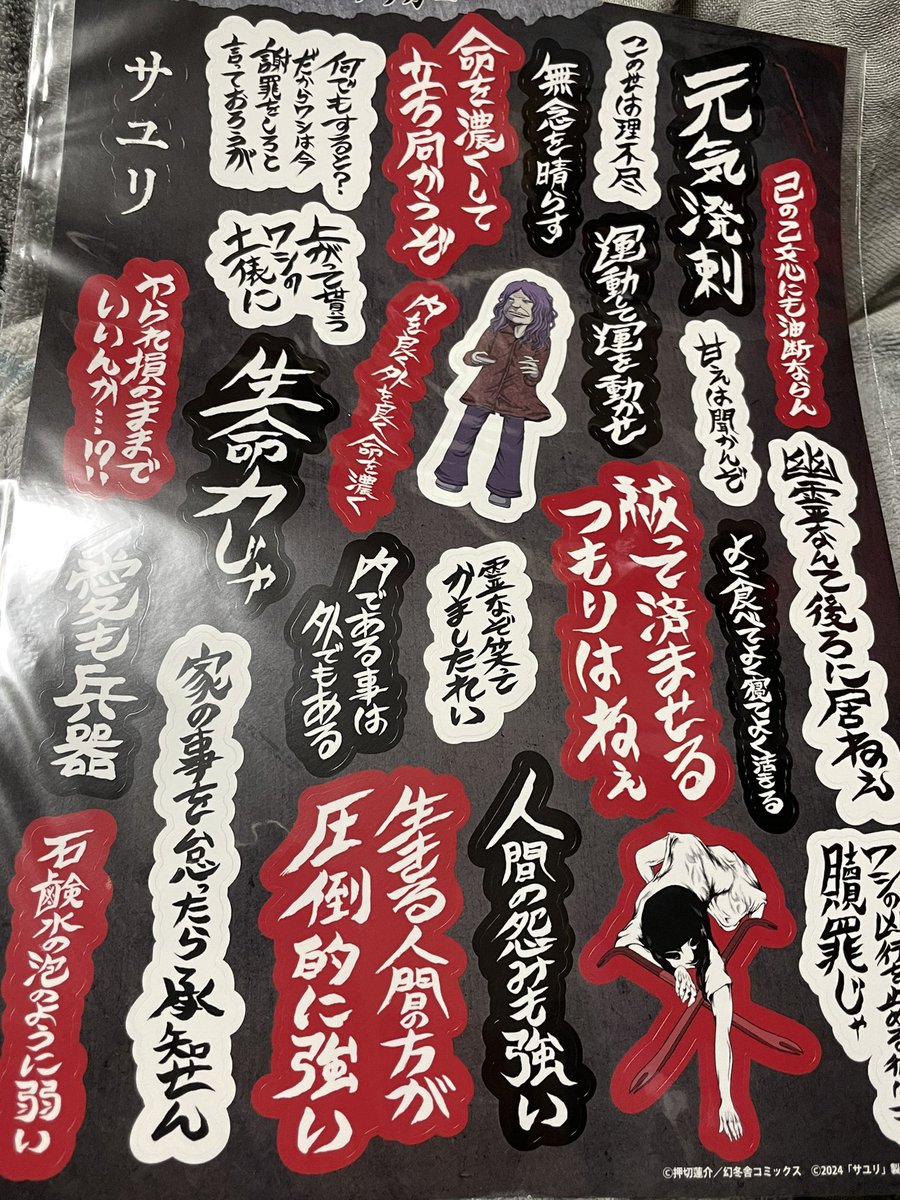 元気溌剌
己の乙女心にも油断ならん
この世は理不尽
無念を晴らす
命を濃くして
立ち向かうぞ
何でもすると？
だからワシは今
謝罪をしろと
言っておろうが
サユリ
運動して運を動かせ
甘えは聞かんぞ
上がって貰う
ワシの
土俵に
内を良く外を良く命を濃く
やられ損のままで
いいんか…!?
生命力じゃ
幽霊なんて後ろに居ねぇ
よく食べてよく寝てよく活きる
祓って済ませる
つもりはねぇ
霊なぞ笑て
かましたれい
内である事は
外でもある
愛も兵器
家の事を怠ったら承知せん
ワシの凶行を止め
贖罪じゃ
人間の怨みも強い
生きる人間の方が
圧倒的に強い
石鹸水の泡のように弱い
©押切蓮介／幻冬舎コミックス ©2024「サユリ」製